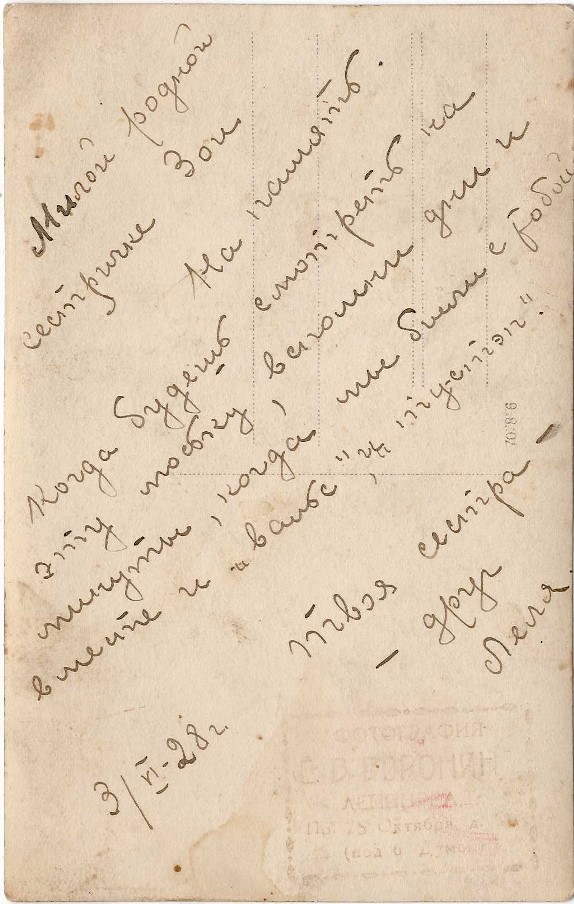 Милой родной
сестричке Зои
На память.
Когда будешь смотреть на
эту вспомни дни и
минуты, когда мы были с тобой
вместе и „вальс" и „тустэп".
Твоя сестра -
- друг
Леля.
3/VI-28 г.
ФОТОГРАФИЯ
Пр. 25 Октября, д.